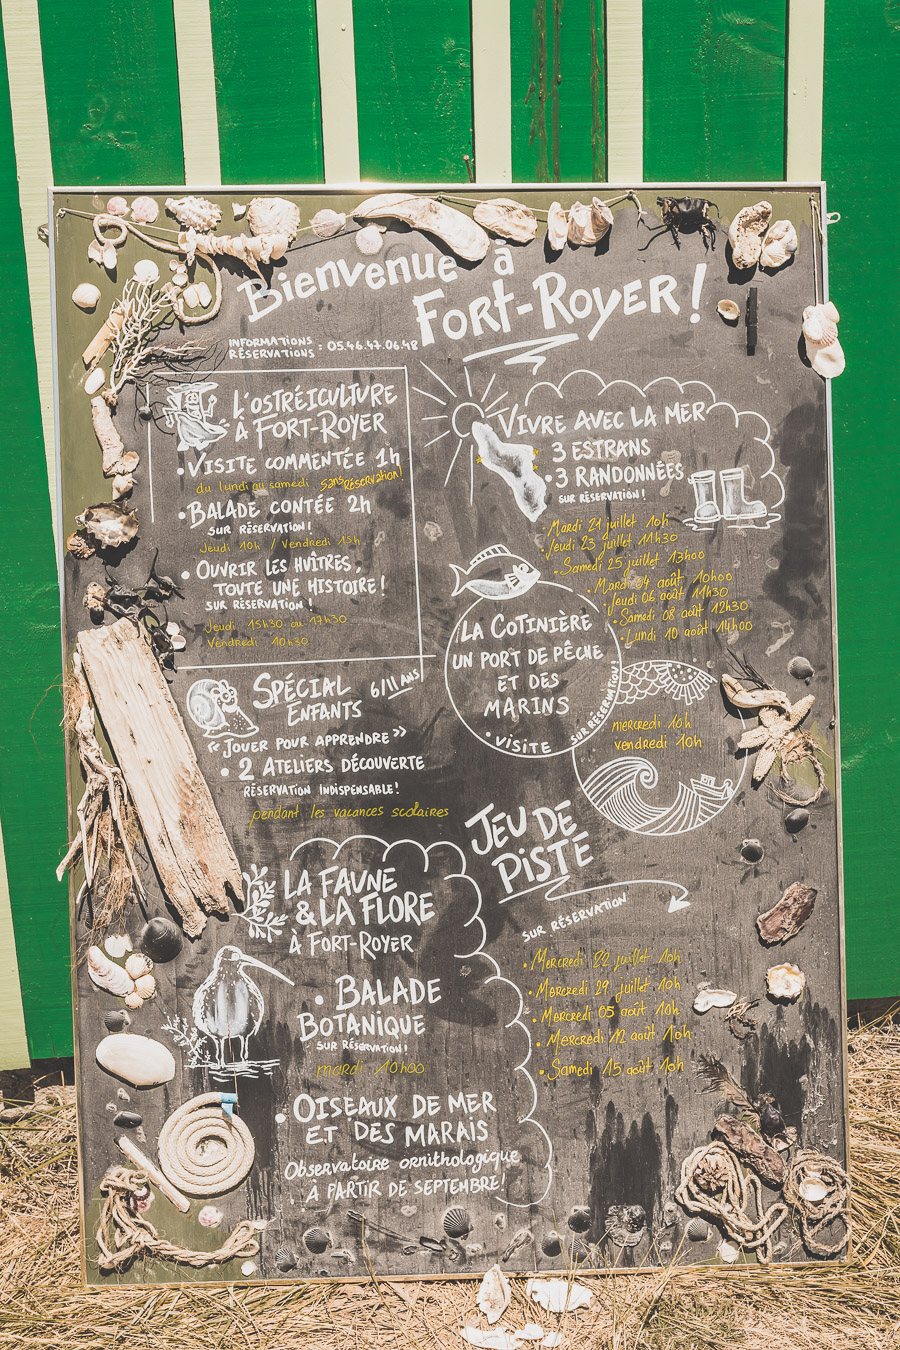 Bienvenue à
Fort-Royer!
INFORMATIONS
RÉSERVATIONS : 05.46.47.06.48
L'OSTRÉICULTURE
À FORT-ROYER
• VISITE COMMENTÉE 1h
du lundi au samedi sans RÉSERVATION!
• BALADE CONTÉE 2h
SUR RÉSERVATION!
Jeudi 10h / Vendredi 15h
• OUVRIR LES HUÎTRES,
TOUTE UNE HISTOIRE!
SUR RÉSERVATION!
Jeudi 15h30 ou 17h30
Vendredi 10h30
SPÉCIAL 6/11 ANS
ENFANTS
« JOUER POUR APPRENDRE »
• 2 ATELIERS DÉCOUVERTE
RÉSERVATION INDISPENSABLE!
pendant les vacances scolaires
LA FAUNE
& LA FLORE
À FORT-ROYER
• BALADE
BOTANIQUE
SUR RÉSERVATION!
mardi 10h00
• OISEAUX DE MER
ET DES MARAIS
Observatoire ornithologique
À PARTIR DE SEPTEMBRE!
VIVRE AVEC LA MER
• 3 ESTRANS
• 3 RANDONNÉES
SUR RÉSERVATION!
• Mardi 21 juillet 10h
• Jeudi 23 juillet 11h30
• Samedi 25 juillet 13h00
• Mardi 04 août 10h00
• Jeudi 06 août 11h30
• Samedi 08 août 12h30
• Lundi 10 août 14h00
LA COTINIÈRE
UN PORT DE PÊCHE
ET DES
MARINS
• VISITE
SUR RÉSERVATION!
mercredi 10h
vendredi 10h
JEU DE
PISTE
SUR RÉSERVATION
• Mercredi 22 juillet 10h
• Mercredi 29 juillet 10h
• Mercredi 05 août 10h
• Mercredi 12 août 10h
• Samedi 15 août 10h